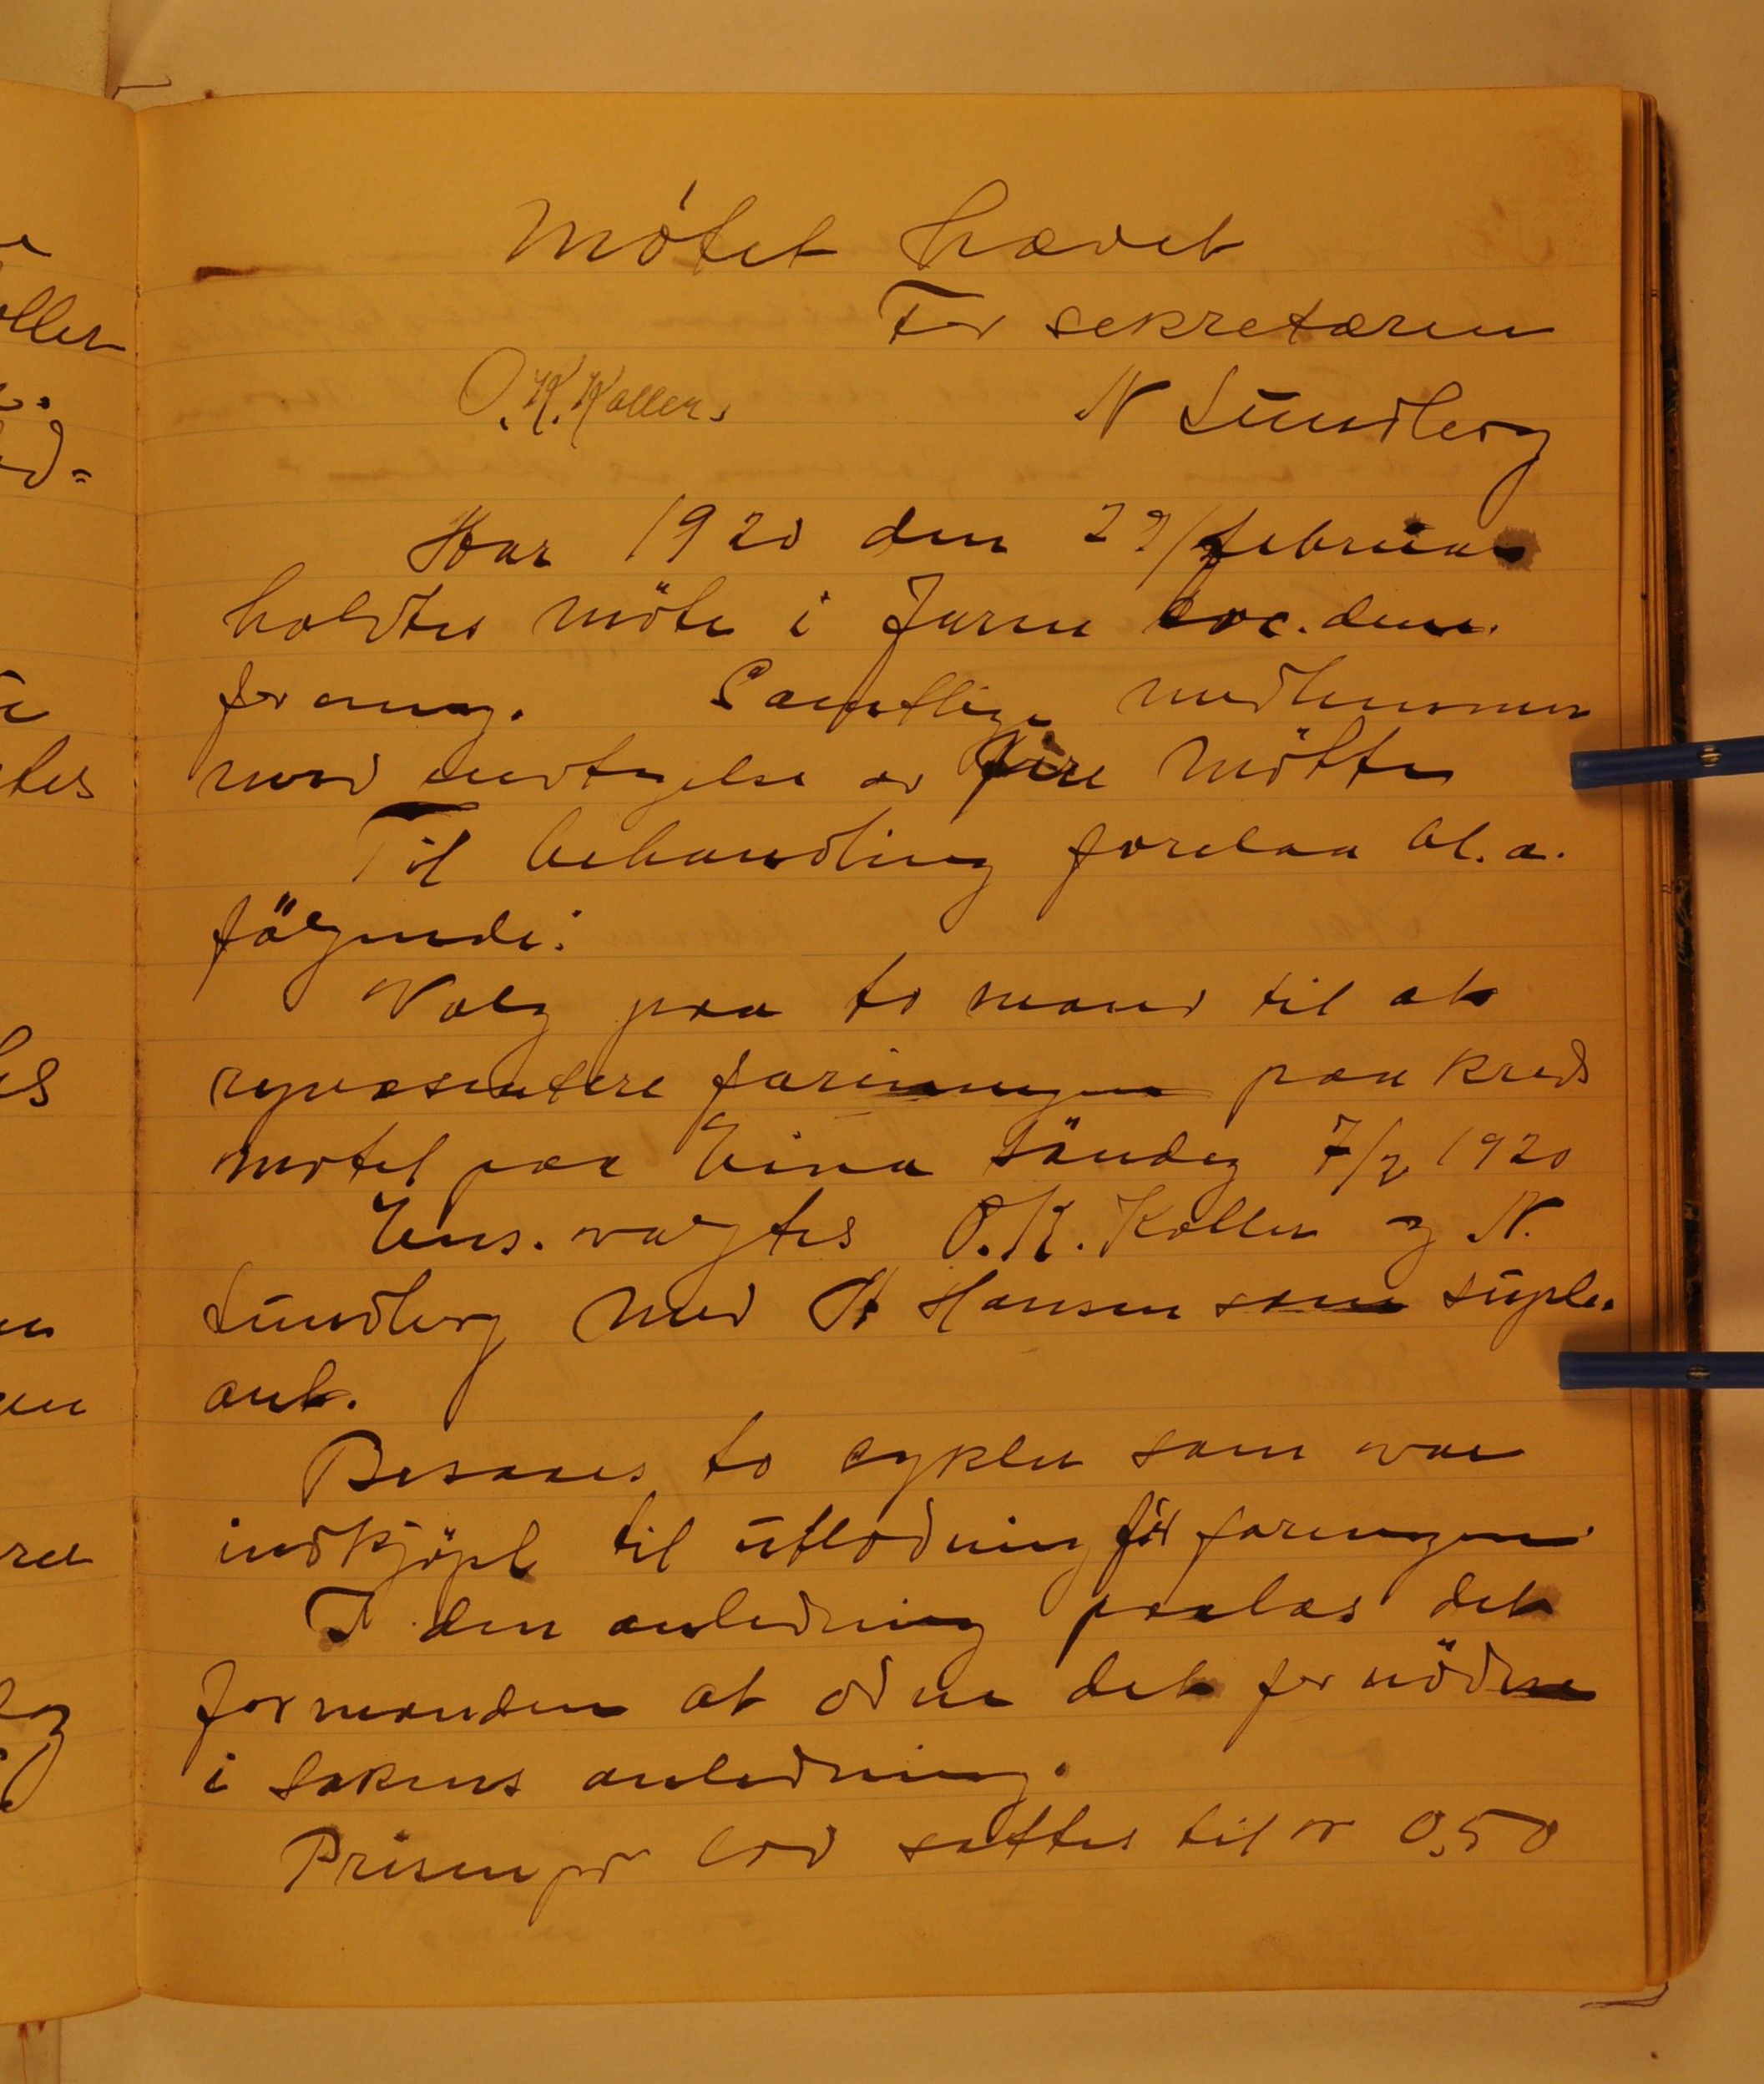 Mötet hævet
For sekretæren
O. K. Kollers N Lundberg
Aar 1920 den 29/2 februar
holdtes möte i Jaren soc. dem.
forening. Samtlige medlemmer
med undtagelse av fire mötte
Til behandling forelaa bl. a.
fölgende:
Valg paa to mand til at
representere foreningen paa kreds
motet paa Eina Söndag 7/3 1920
Ens. valgtes O. K. Koller og N.
Lundberg med A Hansen som suple-
ant.
Besaaes to cykler som var
indkjöpt til utlodning for foreningen
I den anledning paalas det
formanden at odne det fornödne
i sakens anledning.
Prisen pr lod sattes til kr 0,50